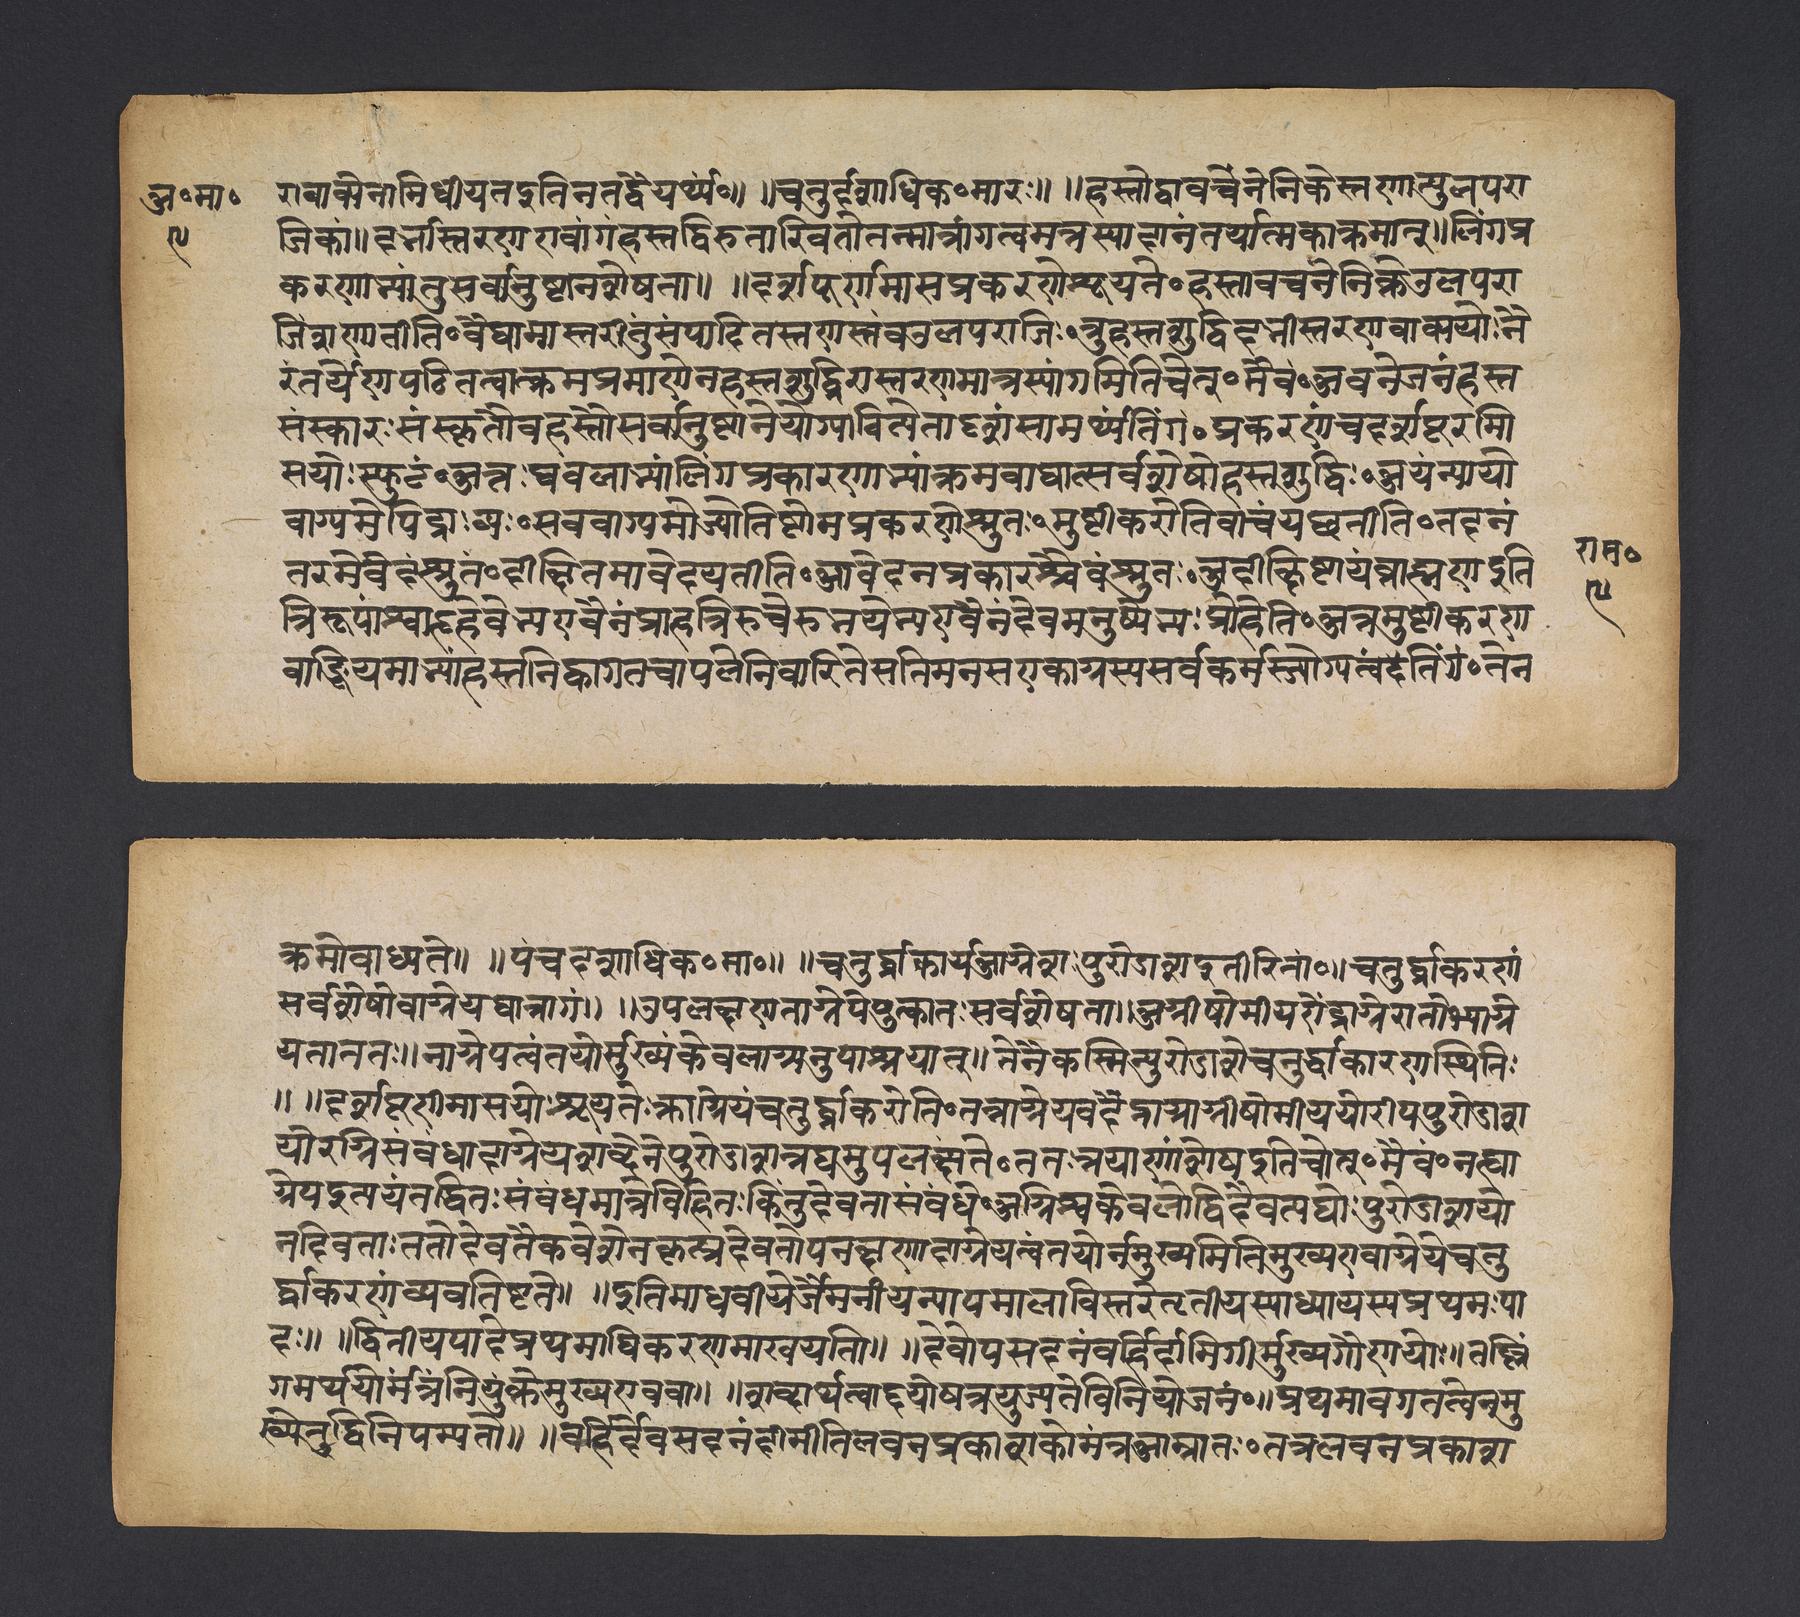 अ॰मा॰
राबाक्येनाभिधीयतइतिनतद्वैयर्थ्यं॰॥ ॥चतुर्दशाधिक॰मारः॥ ॥हस्तौद्वाववनेनेनिक्तेस्तरणात्पुलपरा
जिकां॥दर्भास्तरणएवांगंहस्तद्विरुतारिवतौतन्मात्रांगत्वमत्रस्यादानंतर्यात्मकाक्रमात्॥लिंगप्र
करणाभ्यांतुसर्वानुष्ठानशेषता॥ ॥दर्शपूर्णमासप्रकरणेश्रूयते॰हस्ताववनेनिक्तेउलपरा
जिंशणातीति॰वेद्यामास्तरीतुंसंपादितस्तणस्तंबउलपराजिः॰तत्रहस्तशुद्धिदर्भास्तरणवाक्ययोःनै
रंतर्येणपठितत्वात्क्रमप्रमाणेनहस्तशुद्धिरास्तरणमात्रस्यांगमितिचेत्॰मैवं॰अवनेजनंहस्त
संस्कारःसंस्कृतौचहस्तौसर्वानुष्ठानेयोग्यावित्येतादृशंसामर्थ्यंलिंगं॰प्रकरणंचदर्शपूर्णमा
सयोःस्फुटं॰अतःप्रबलाभ्यांलिंगप्रकरणाभ्यांक्रमबाधात्सर्वशेषोहस्तशुद्धिः॰अयंन्यायो
वाग्यमेपिद्रष्टव्यः॰सचवाग्यमोज्योतिष्टोमप्रकरणेश्रुतः॰मुष्टीकरोतिवाचंयछतीति॰तदनं
तरमेवेदंश्रुतं॰दीक्षितमावेदयतीति॰आवेदनप्रकारश्चैवंश्रुतः॰अदीक्षिष्टायंब्राह्मणइति
त्रिरुपांश्वाहदेवेभ्यएवैनंप्राहत्रिरुच्चैरुभयेभ्यएवैनंदेवमनुष्येभ्यःप्राहेति॰अत्रमुष्टीकरण
वाङ्नियमाभ्यांहस्तजिह्वागतचापलेनिवारितेसतिमनसएकाग्रस्यसर्वकर्मसुयोग्यत्वंदलिंगं॰तेन
राम॰
क्रमोबाध्यते॥ ॥पंचदशाधिक॰मा॰॥ ॥चतुर्द्धाकार्यआग्नेयः पुरोडाशइतीरिता॰॥चतुर्द्धाकरणं
सर्वशेषोवाग्नेयएवागं॥ ॥उपलक्षणताग्नेयेयुक्तातःसर्वशेषता॥अग्नीषोमीयऐंद्राग्नेरातोभ्याग्ने
यतानतः॥नाग्नेयत्वंतयोर्मुख्यंकेवलाग्न्यनुपाश्रयात्॥तेनैकस्मिन्पुरोडाशेचतुर्द्धाकारणस्थितिः
॥ ॥दर्शपूर्णमासयोःश्रूयतेःआग्नेयंचतुर्द्धाकरोति॰तत्राग्नेयवदैंद्राग्नाग्नीषोमीययोरपिपुरोडाश
योरग्निसंबंधादाग्नेयशब्देनपुरोडाशत्रयमुपलक्ष्यते॰ततःत्रयाणांशेषइतिचेत्॰मैवं॰नह्या
ग्नेयइत्ययंतद्धितःसंबंधमात्रेविहितःकिंतुदेवतासंबंधे॰अग्निश्चकेवलोद्विदैवत्ययोःपुरोडाशयो
नदेवताःततोदेवतैकदेशेनकृत्स्नदेवतोपलक्षणादाग्नेयत्वंतयोर्नमुख्यमितिमुख्यएवाग्नेयेचतु
र्द्धाकरणंव्यवतिष्ठते॥ ॥इतिमाधवीयेजैमिनीयन्यायमालाविस्तरेतृतीयस्याध्यायस्यप्रथमःपा
दः॥ ॥द्वितीयपादेप्रथमाधिकरणमारचयति॥ ॥देवोपसदनंबर्हिर्दामिगीर्मुख्यगौणयोः॥तल्लिं
गमर्थ्ययोर्मंत्रंनियुंक्तेमुख्यएववा॥ ॥शब्दार्थत्वाद्द्वयोषत्रयुज्यतेविनियोजनं॰॥प्रथमावगतत्वेनमु
ख्येतद्विनियम्यते॥ ॥बर्हिर्देवसदनंदामीतिलवनप्रकाशकोमंत्रआम्नातः॰तत्रलवनप्रकाश